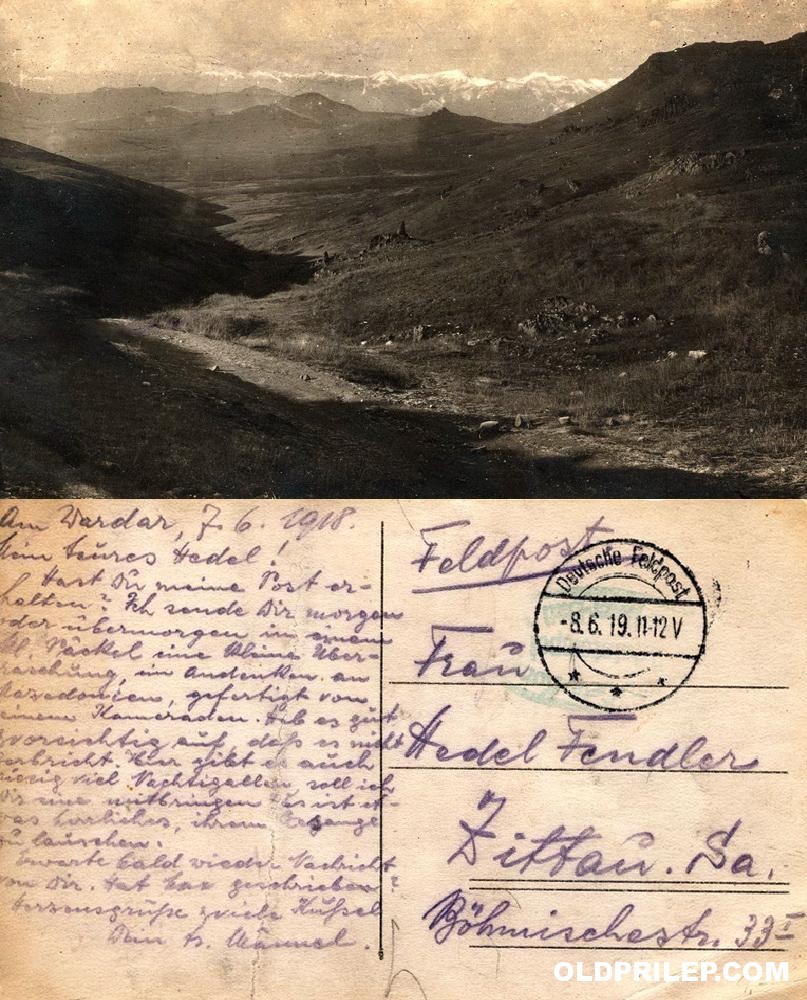 Am Wardar, 7.6.1918.
Mein teures Hedel!
Hast Du meine Post er-
halten? Ich sende Dir morgen
oder übermorgen in einem
kl. Päckel eine kleine Über-
raschung, ein Andenken an
Mazedonien, gefertigt von
einem Kameraden. Heb es gut
u. vorsichtig auf, daß es nicht
zerbricht. Hier gibt es auch
riesig viel Nachtigallen, soll ich
Dir eine mitbringen? Es ist et-
was herrliches, ihrem Gesange
zu lauschen.
Erwarte bald wieder Nachricht
von Dir. Hat geschrieben?
Herzensgrüße viele Küssel
Dein Männel.
Feldpost
Deutsche Feldpost
-8.6.19.11-12V
Frau
Hedel Fendler
Zittau. Sa.
Böhmischestr. 33 I
OLDPRILEP.COM